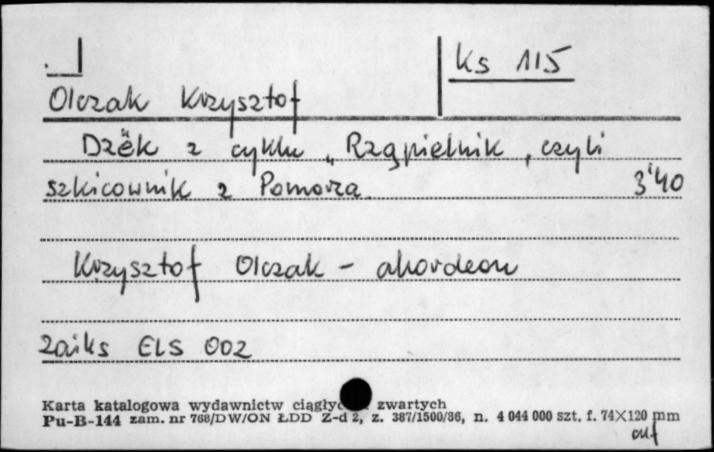 Ks 115
Olczak Krzysztof
Dzëk z cyklu „Rzgpielnik, czyli
szkicownik z Pomorza 3'40
Krzysztof Olczak - akordeon
Zaiks ELS 002
Karta katalogowa wydawnictw zwartych
Pu-B-144 zam. nr 768/DW/ON ŁDD Z-d 2, z. 387/1500/86, n. 4 044 000 szt. f. 74×120 mm